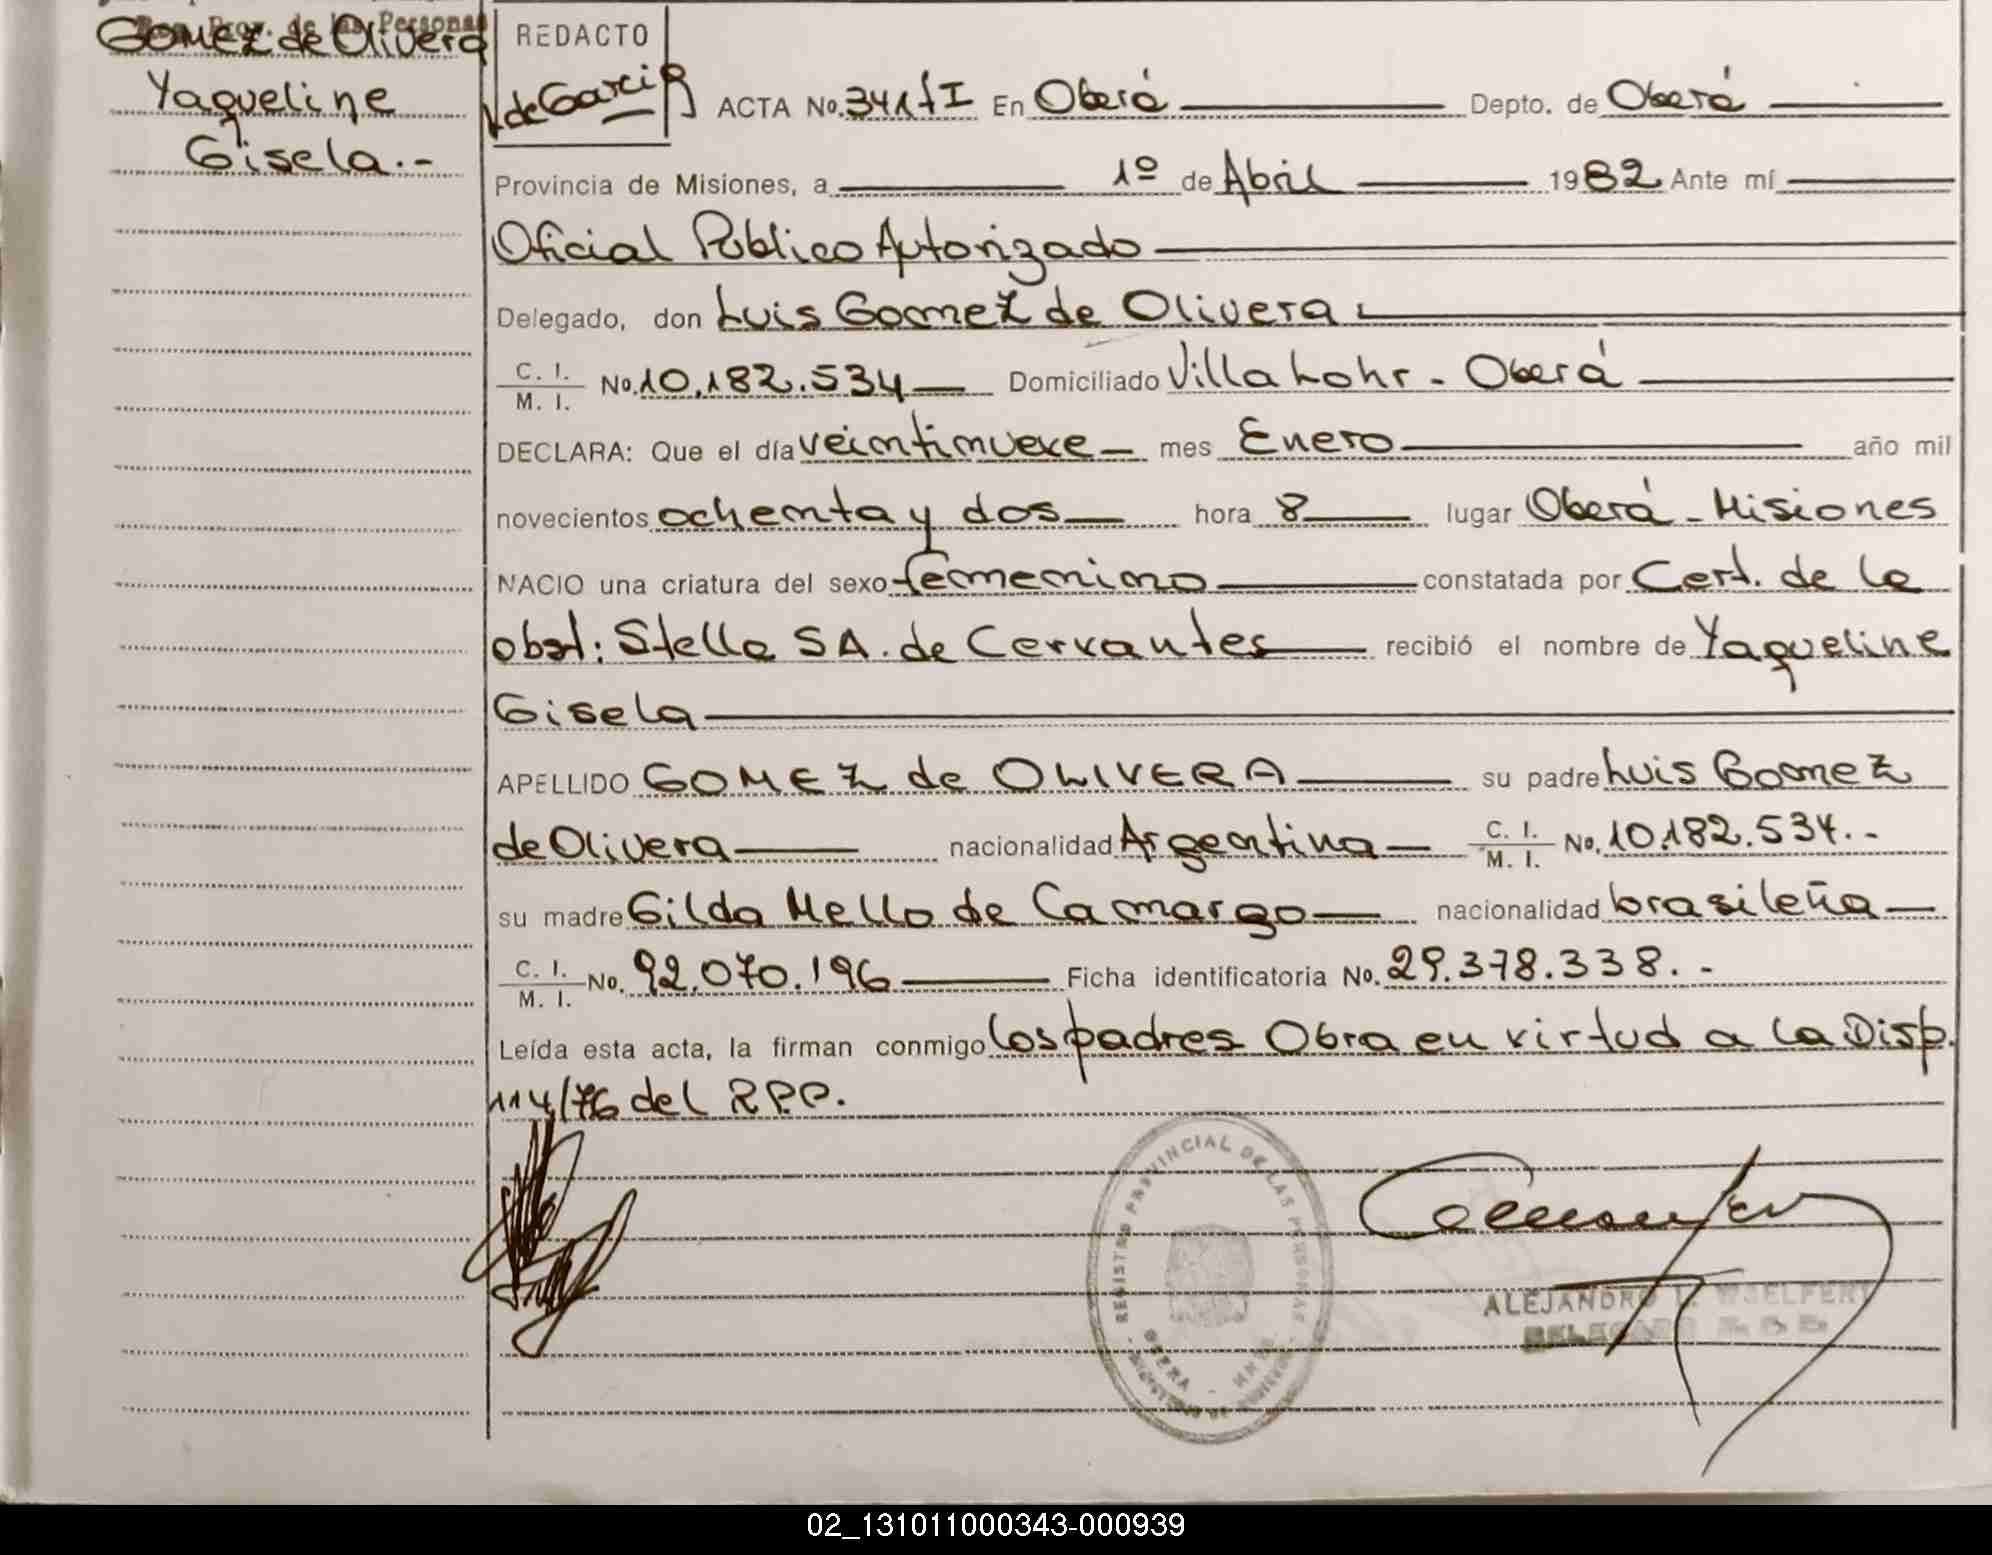 Reg. Prov. de las Personas
Gomez de Olivera
Yaqueline
Gisela.-
REDACTO
V. de Garcia
ACTA No. 341 f I En Oberá Depto. de Oberá
Provincia de Misiones, a 1º de Abril 1982 Ante mí
Oficial Publico Autorizado
Delegado, don Luis Gomez de Olivera
C. I.
M. I. No. 10.182.534 Domiciliado Villa Lohr - Oberá
DECLARA: Que el día veintinueve mes Enero año mil
novecientos ochenta y dos hora 8 lugar Oberá - Misiones
NACIO una criatura del sexo femenino constatada por Cert. de la
obst: Stella SA. de Cervantes recibió el nombre de Yaqueline
Gisela
APELLIDO GOMEZ de OLIVERA su padre Luis Gomez
de Olivera nacionalidad Argentina C. I.
M. I. No. 10.182.534.-
su madre Gilda Mello de Camargo nacionalidad brasileña
C. I.
M. I. No. 92.070.196 Ficha identificatoria No. 29.378.338.-
Leída esta acta, la firman conmigo los padres Obra en virtud a la Disp.
114/76 del R.P.P.
REGISTRO PROVINCIAL DE LAS PERSONAS
OBERA - MNES.
ALEJANDRO WOELFERT
DELEGADO
02_131011000343-000939